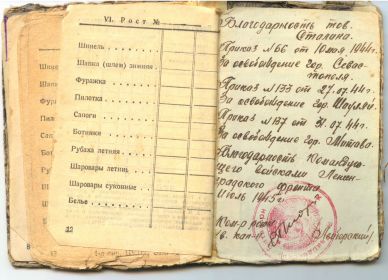 VI. Рост №
Шинель
Шапка (шлем) зимняя
Фуражка
Пилотка
Сапоги
Ботинки
Рубаха летняя
Шаровары летние
Шаровары суконные
Белье
32
Благодарность тов.
Сталина.
Приказ №66 от 10 мая 1944г.
За освобождение гор. Севас-
тополя.
Приказ №133 от 27.07.44г.
За освобождение гор. Шауляй.
Приказ №137 от 31.07.44г.
За освобождение гор. Митава.
Благодарность Командую-
щего войсками Ленин-
градского фронта
Июль 1945г.
Ком-р роты
гв. кап-н